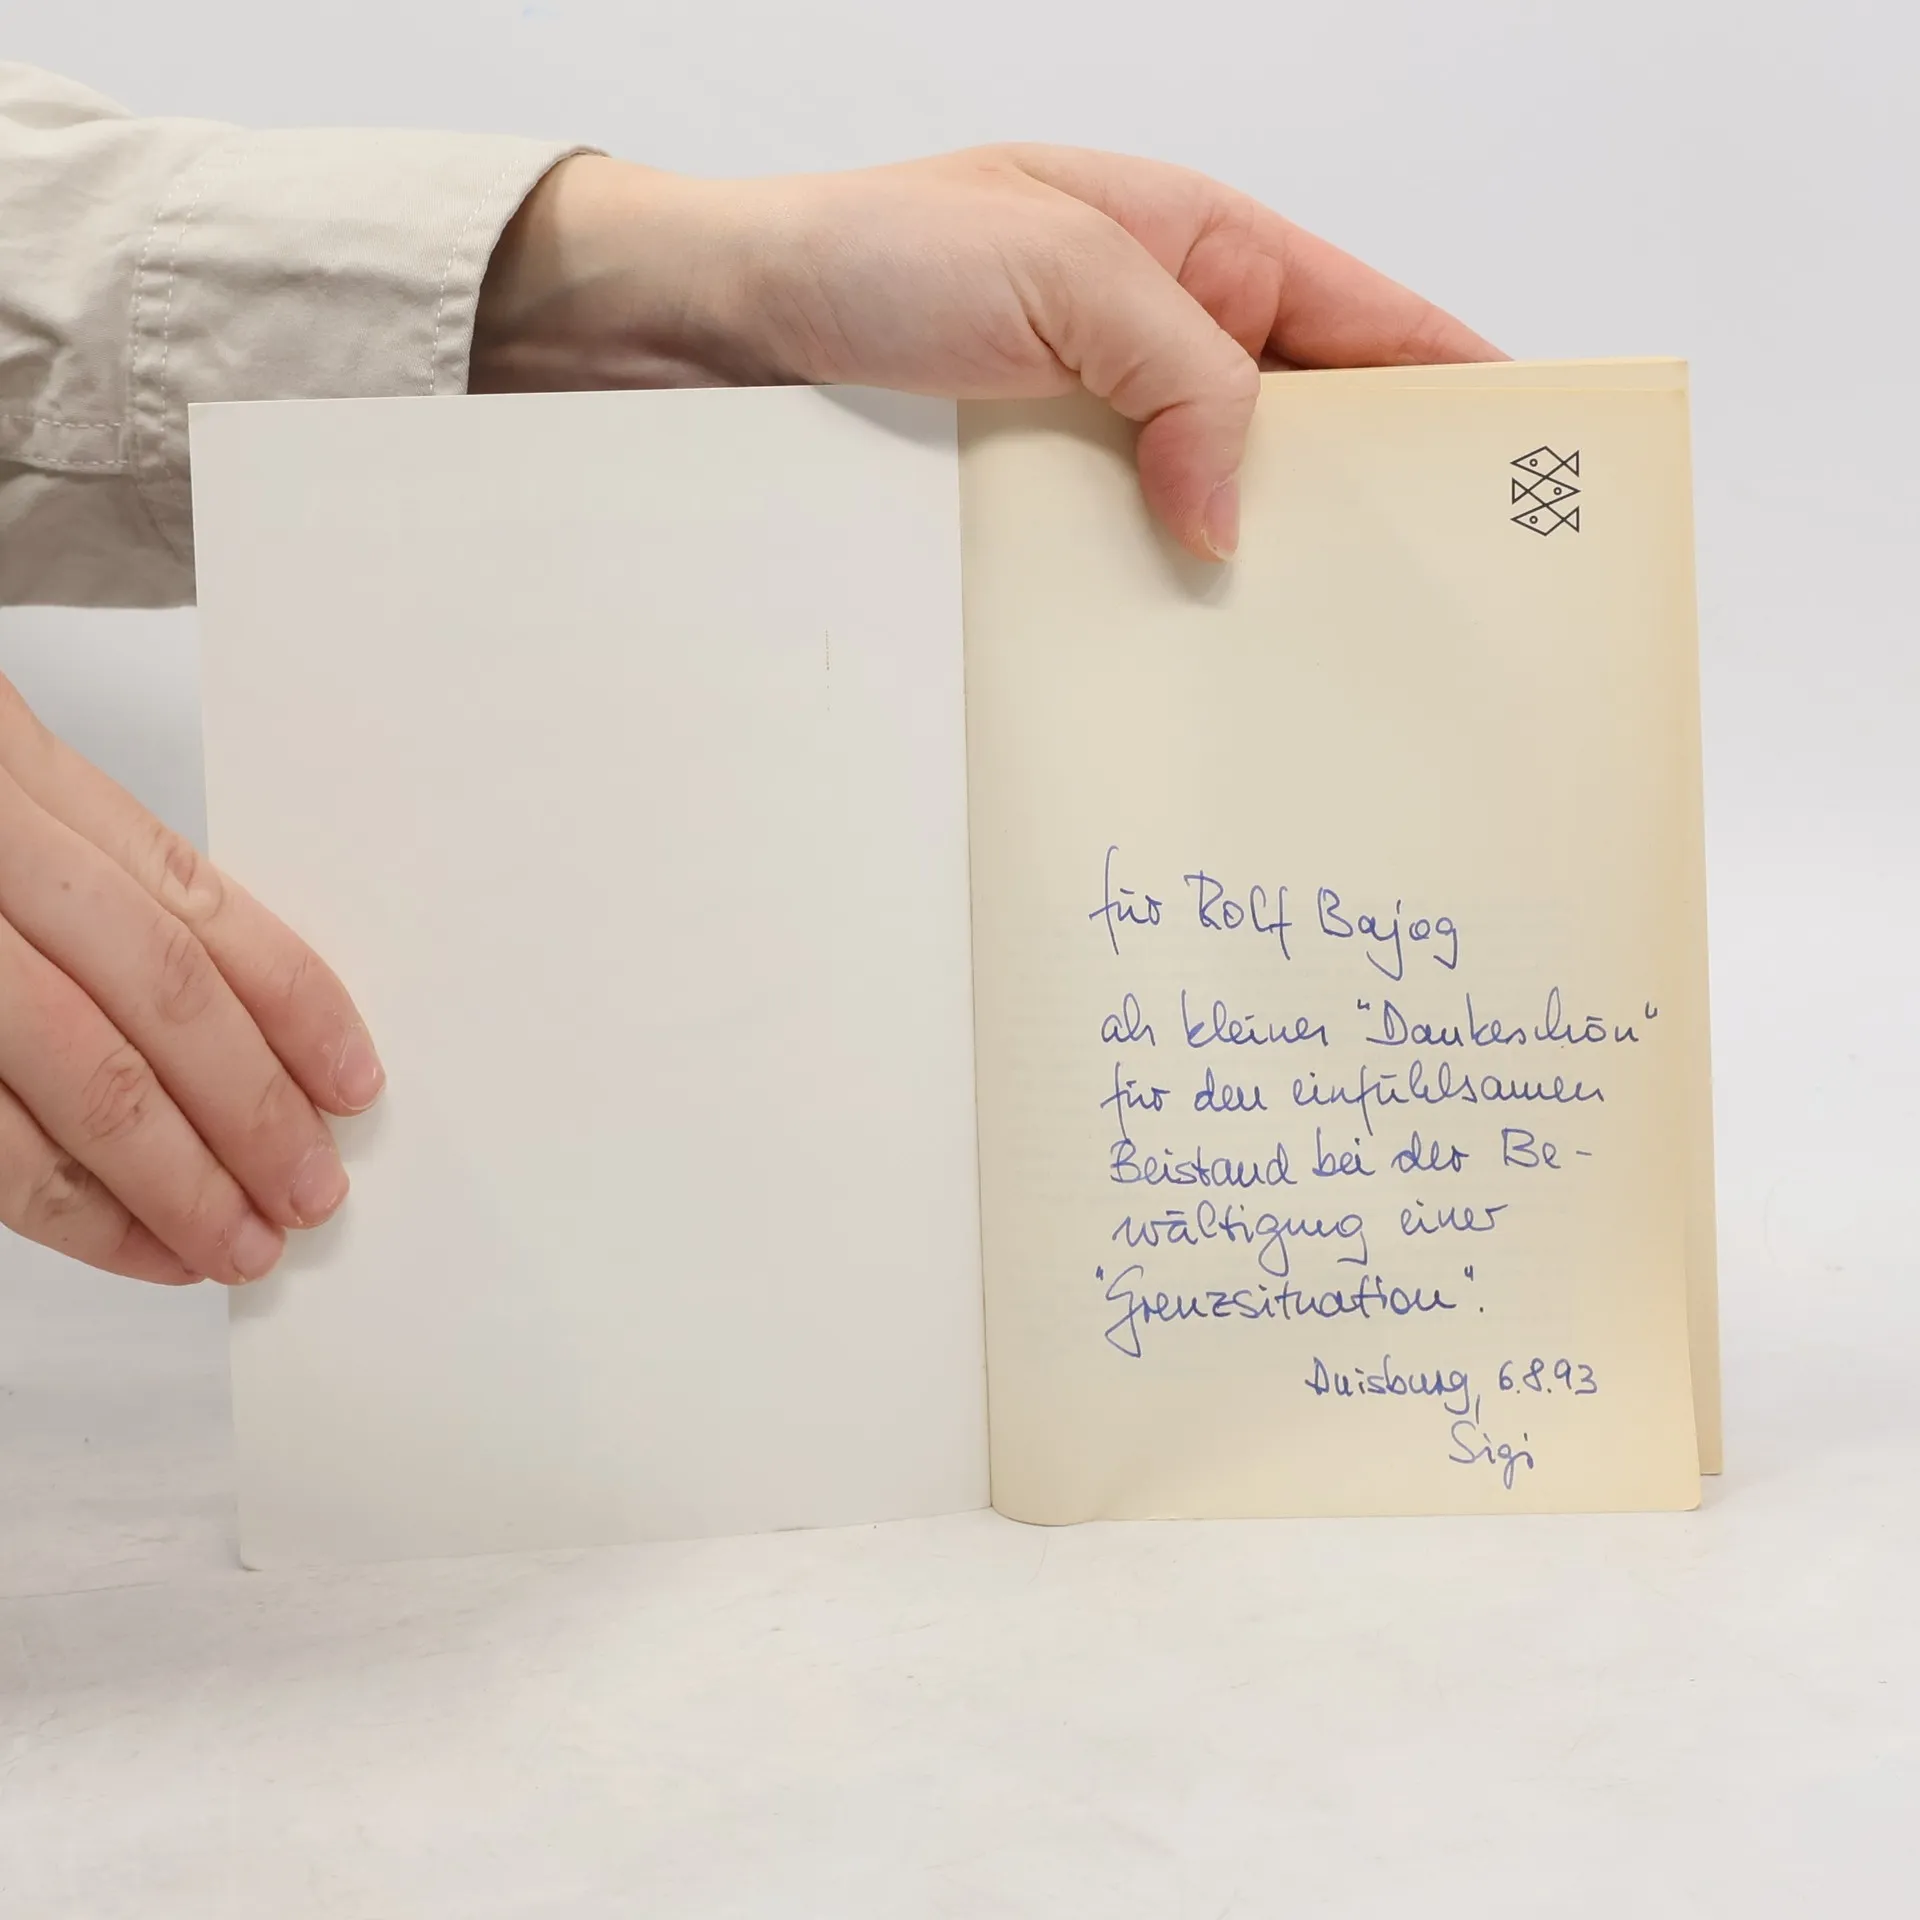 für Rolf Bajog
als kleines "Dankeschön"
für den einfühlsamen
Beistand bei der Be-
wältigung einer
"Grenzsituation".
Duisburg, 6.8.93
Sigi